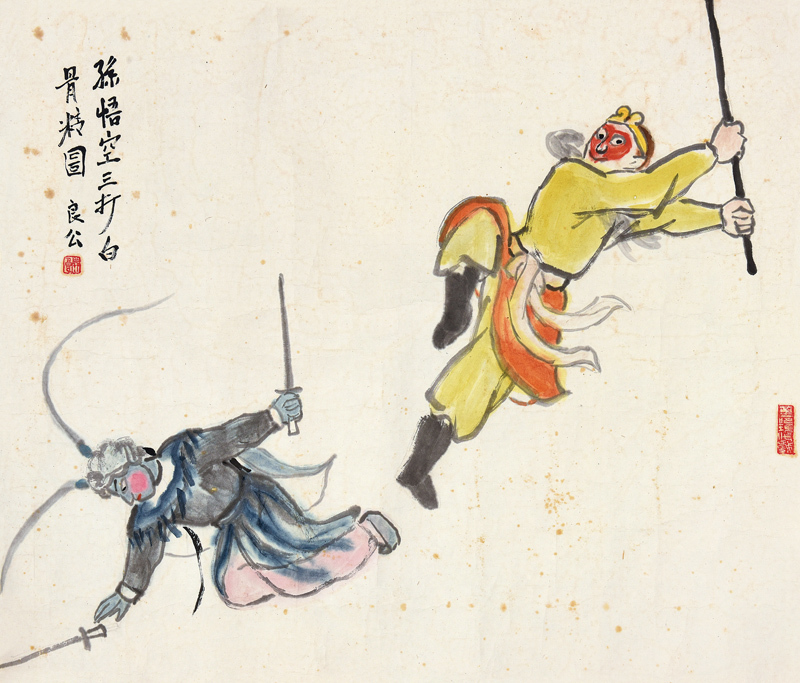 孫悟空三打白
骨精圖
良公